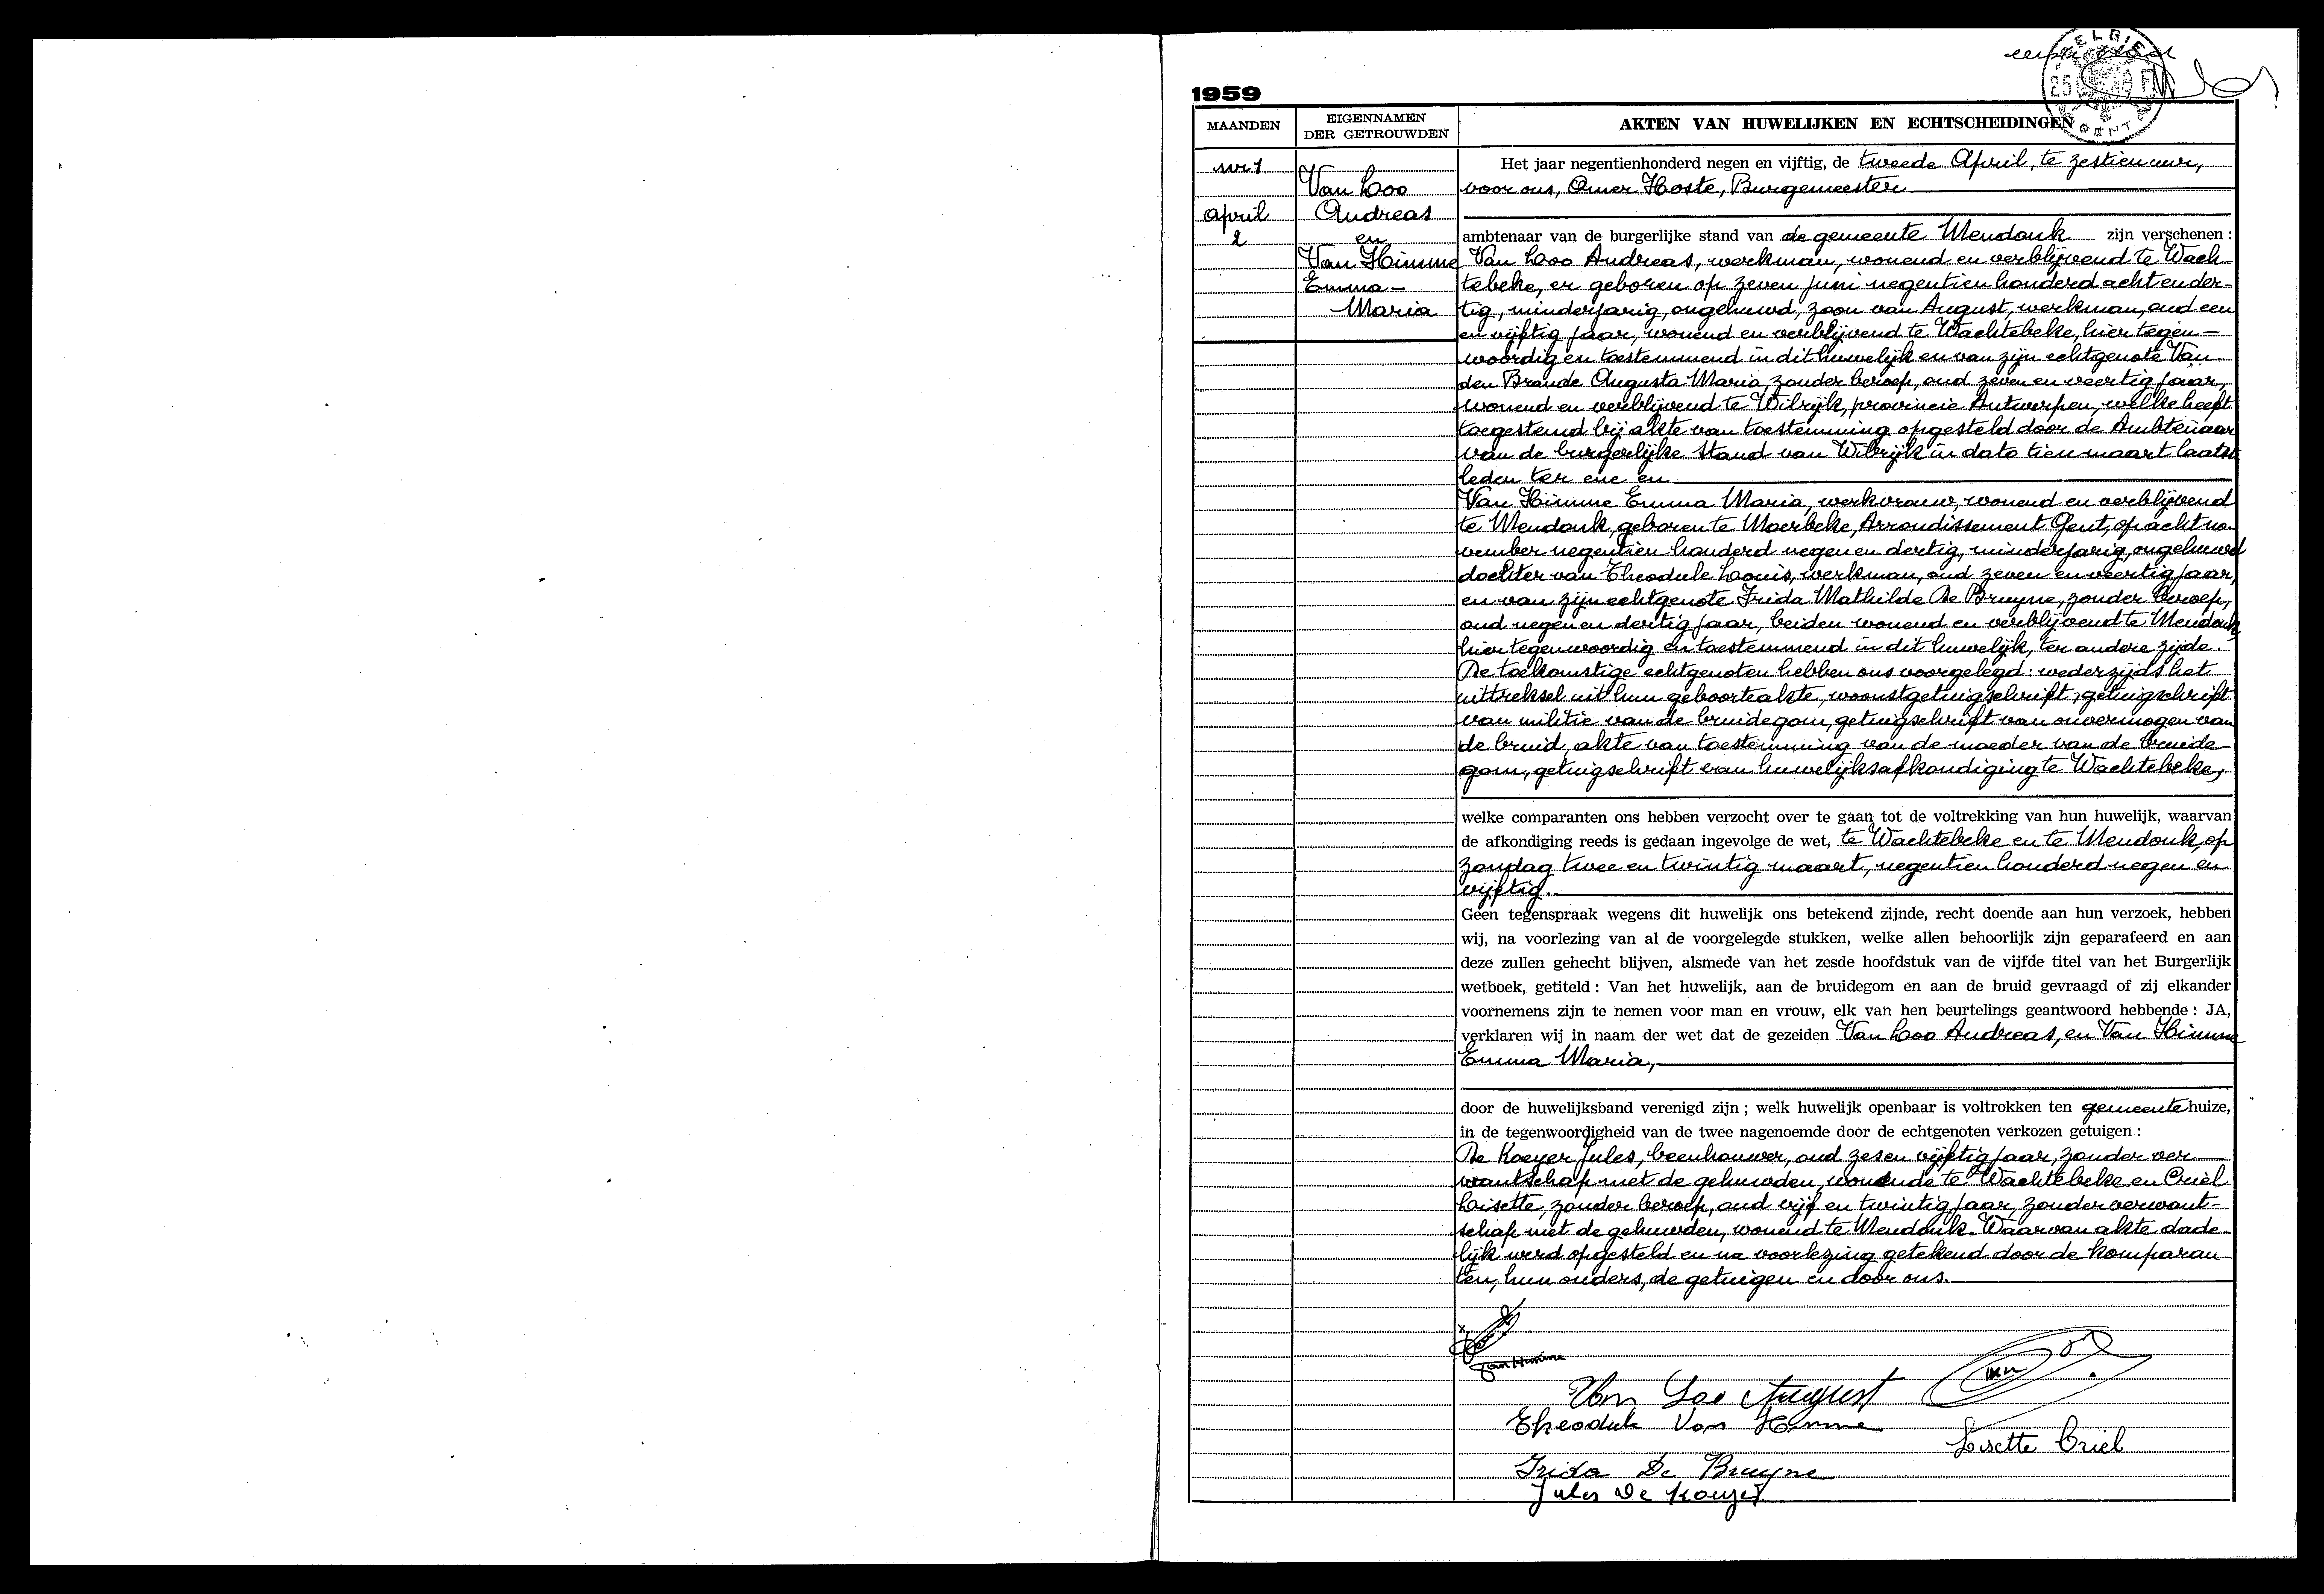 BELGIE
GENT
1959
MAANDEN
EIGENNAMEN
DER GETROUWDEN
AKTEN VAN HUWELIJKEN EN ECHTSCHEIDINGEN
nr 1
April
2
Van Loo
Andreas
en
Van Himme
Emma-
Maria
Het jaar negentienhonderd negen en vijftig, de tweede April, te zestien uur,
voor ons, Omer Hoste, Burgemeester
ambtenaar van de burgerlijke stand van de gemeente Mendonk zijn verschenen :
Van Loo Andreas, werkman, wonend en verblijvend te Wach-
tebeke, er geboren op zeven juni negentien honderd acht en der-
tig, minderjarig, ongehuwd, zoon van August, werkman, oud een
en vijftig jaar, wonend en verblijvend te Wachtebeke, hier tegen-
woordig en toestemmend in dit huwelijk en van zijn echtgenote Van
den Brande Augusta Maria, zonder beroep, oud zeven en veertig jaar,
wonend en verblijvend te Wilrijk, provincie Antwerpen, welke heeft
toegestemd bij akte van toestemming opgesteld door de Ambtenaar
van de burgerlijke Stand van Wilrijk in dato tien maart laatst
leden ter ene en
Van Himme Emma Maria, werkvrouw, wonend en verblijvend
te Mendonk, geboren te Moerbeke, Arrondissement Gent, op acht no-
vember negentien honderd negen en dertig, minderjarig, ongehuwd
dochter van Theodule Louis, werkman, oud zeven en veertig jaar,
en van zijn echtgenote Frida Mathilde De Bruyne, zonder beroep,
oud negen en dertig jaar, beiden wonend en verblijvend te Mendonk
hier tegenwoordig en toestemmend in dit huwelijk, ter andere zijde.
De toekomstige echtgenoten hebben ons voorgelegd: wederzijds het
uittreksel uit hun geboorteakte, woonstgetuigschrift, getuigschrift
van militie van de bruidegom, getuigschrift van onvermogen van
de bruid, akte van toestemming van de moeder van de bruide-
gom, getuigschrift van huwelijksafkondiging te Wachtebeke,
welke comparanten ons hebben verzocht over te gaan tot de voltrekking van hun huwelijk, waarvan
de afkondiging reeds is gedaan ingevolge de wet, te Wachtebeke en te Mendonk, op
zondag twee en twintig maart, negentien honderd negen en
vijftig.
Geen tegenspraak wegens dit huwelijk ons betekend zijnde, recht doende aan hun verzoek, hebben
wij, na voorlezing van al de voorgelegde stukken, welke allen behoorlijk zijn geparafeerd en aan
deze zullen gehecht blijven, alsmede van het zesde hoofdstuk van de vijfde titel van het Burgerlijk
wetboek, getiteld : Van het huwelijk, aan de bruidegom en aan de bruid gevraagd of zij elkander
voornemens zijn te nemen voor man en vrouw, elk van hen beurtelings geantwoord hebbende : JA,
verklaren wij in naam der wet dat de gezeiden Van Loo Andreas, en Van Himme
Emma Maria,
door de huwelijksband verenigd zijn ; welk huwelijk openbaar is voltrokken ten gemeentehuize,
in de tegenwoordigheid van de twee nagenoemde door de echtgenoten verkozen getuigen :
De Koeyer Jules, beenhouwer, oud zesen vijftig jaar, zonder ver-
wantschap met de gehuwden, wonende te Wachtebeke en Criel
Lisette, zonder beroep, oud vijf en twintig jaar, zonder verwant-
schap met de gehuwden, wonend te Mendonk. Waarvan akte dade-
lijk werd opgesteld en na voorlezing getekend door de komparan-
ten, hun ouders, de getuigen en door ons.
Van Himme
Van Loo August
Theodule Van Himme
Lisette Criel
Frida De Bruyne
Jules De Koeyer